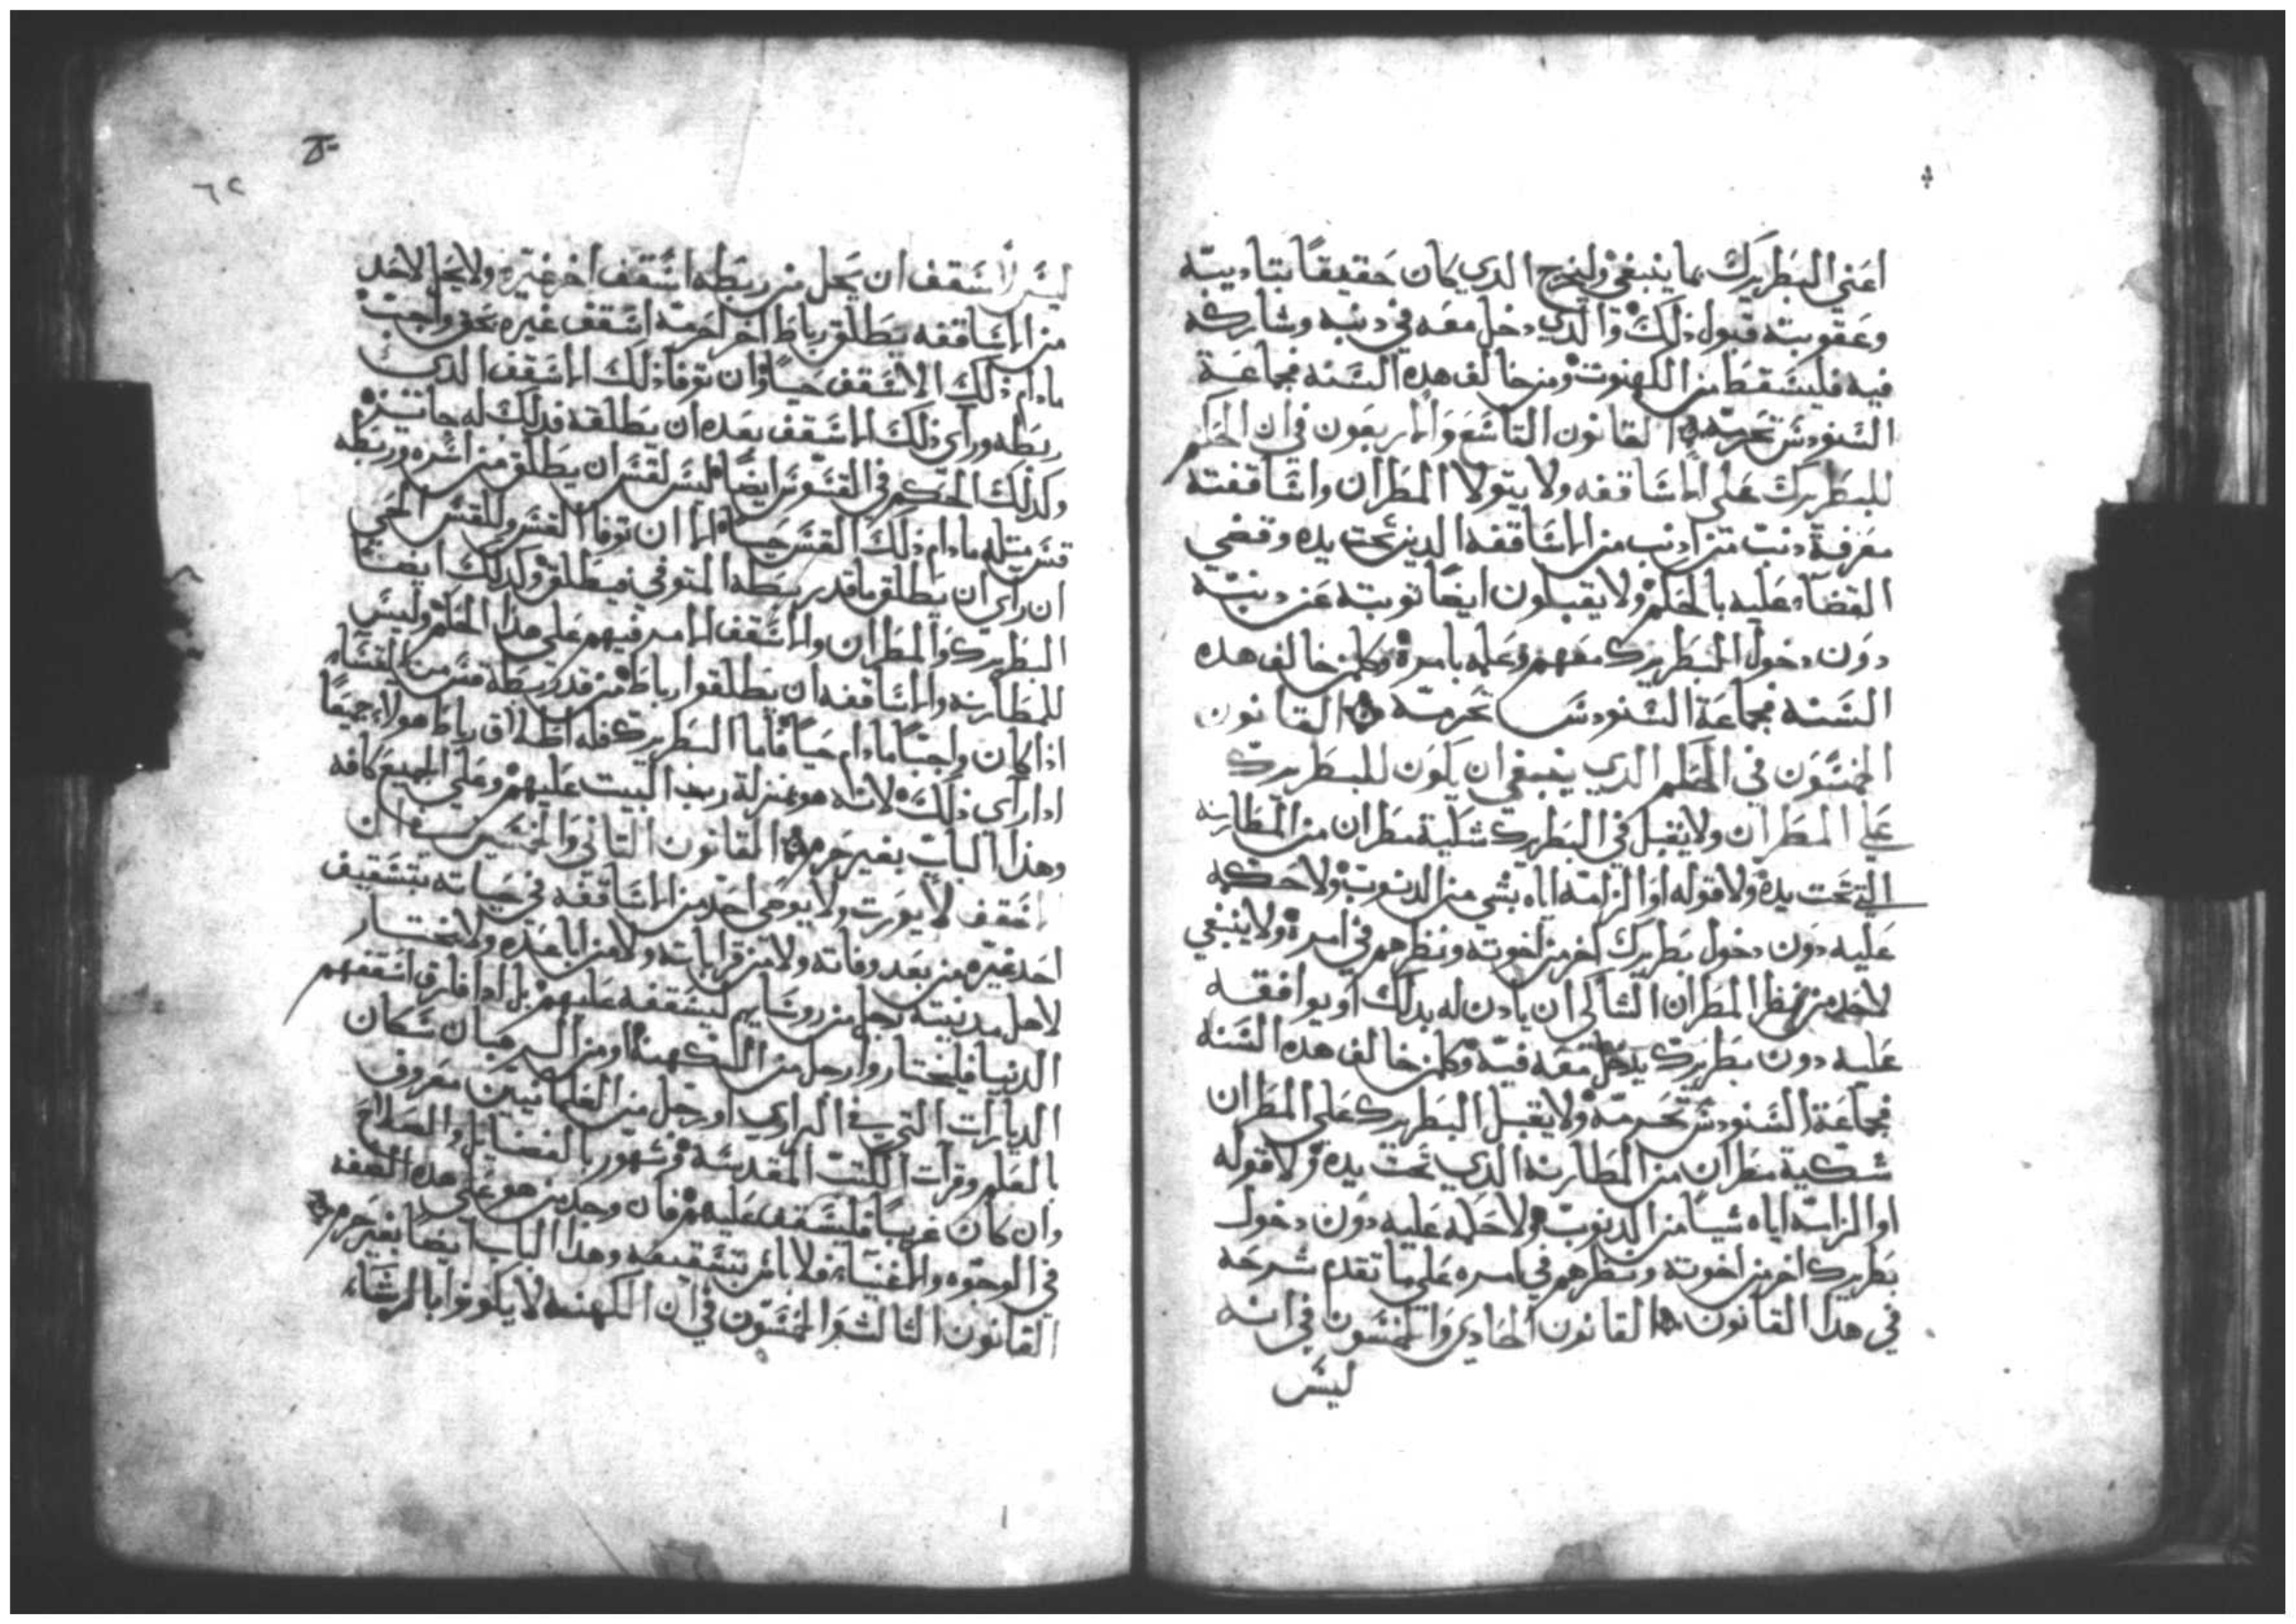 اعني البطريرك بما ينبغي وليخرج الدي كان حقيقًا بتاديبه
وعقوبته قبول ذلك والدي دخل معه في دنبه وشاركه
فيه فليسقط من الكهنوت ومن خالف هده السنه فجماعة
السنودس تحرمه القانون التاسع والاربعون في ان الحكم
للبطريرك على الاساقفه ولا يتولا المطران واساقفته
معرفة دنب من ادنب من الاساقفه الدين تحت يده وقضي
القضاء عليه بالحكم ولا يقبلون ايضًا توبته عن دنبه
دون دخول البطريرك معهم وعلمه بامره وكلمن خالف هده
السنه فجماعة السنودس تحرمه القانون
الخمسون في الحكم الدي ينبغي ان يكون للبطريرك
على المطران ولا يقبل في البطريرك شكية مطران من المطارنه
التي تحت يده ولا قوله او الزامه اياه بشي من الدنوب ولا حكمه
عليه دون دخول بطريرك اخر من اخوته ونظرهم في امره ولا ينبغي
لاحد من نظر المطران الشاكي ان يادن له بدلك او يوافقه
عليه دون بطريرك يدخل معه فيه وكلمن خالف هده السنه
فجماعة السنودس تحرمه ولا يقبل البطريرك على المطران
شكية مطران من المطارنه الدي تحت يده ولا قوله
او الزامه اياه شيًا من الدنوب ولا حكمه عليه دون دخول
بطريرك اخر من اخوته ونظرهم في امره على ما تقدم شرحه
في هدا القانون القانون الحادي والخمسون في انه
ليس
٦٢
ليس لاسقف ان يحل من ربطه اسقف اخر غيره ولا يحل لاحد
من الاساقفه يطلق رباط اخر احرمه اسقف غيره بحق واجب
مادام ذلك الاسقف حيًا وان توفا ذلك الاسقف الدي
ربطه وراي ذلك الاسقف بعده ان يطلقه فدلك له جايز
وكدلك الحكم في القسوس ايضًا ليس لقس ان يطلق من اسره وربطه
قس مثله مادام ذلك القس حيًا الا ان توفا القس وللقس الحي
ان راي ان يطلق ما قد ربطه المتوفي فيطلق وكدلك ايضًا
البطريرك والمطران والاسقف الامر فيهم على هدا الحكم وليس
للمطارنه والاساقفه ان يطلقوا رباط من قد ربطه قس من القساء
اذا كان واجبًا مادام حيًا فاما البطريرك فله اطلاق رباط هولاء جميعًا
اداراي ذلك لانه هو بمنزلة رب البيت عليهم وعلى الجميع كافه
وهذا الباب بغير حرم القانون التاني والخمسين في ان
اسقف لا يورت ولا يوصي احد من الاساقفه في حياته بتسقيف
احد غيره من بعد وفاته ولا من قراباته ولا من اباعده ولا يختار
لاهل مدينته رجل من روسايهم ليسقفه عليهم بل ادا فارق اسقفهم
الدنيا فليختاروا رجل من الكهنة او من الرهبان سكان
الديارات التي في البراري او رجل من العلمانيين معروف
بالعلم وقرات الكتب المقدسه ومشهور بالفضايل والصلاح
وان كان غريبًا فليسقف عليهم فان وجد من هو على هده الصفه
في الوجوه والاغنياء فلا باس بتسقيفه وهذا الباب ايضًا بغير حرم
القانون التالت والخمسون في ان الكهنه لا يكونوا بالرشاء